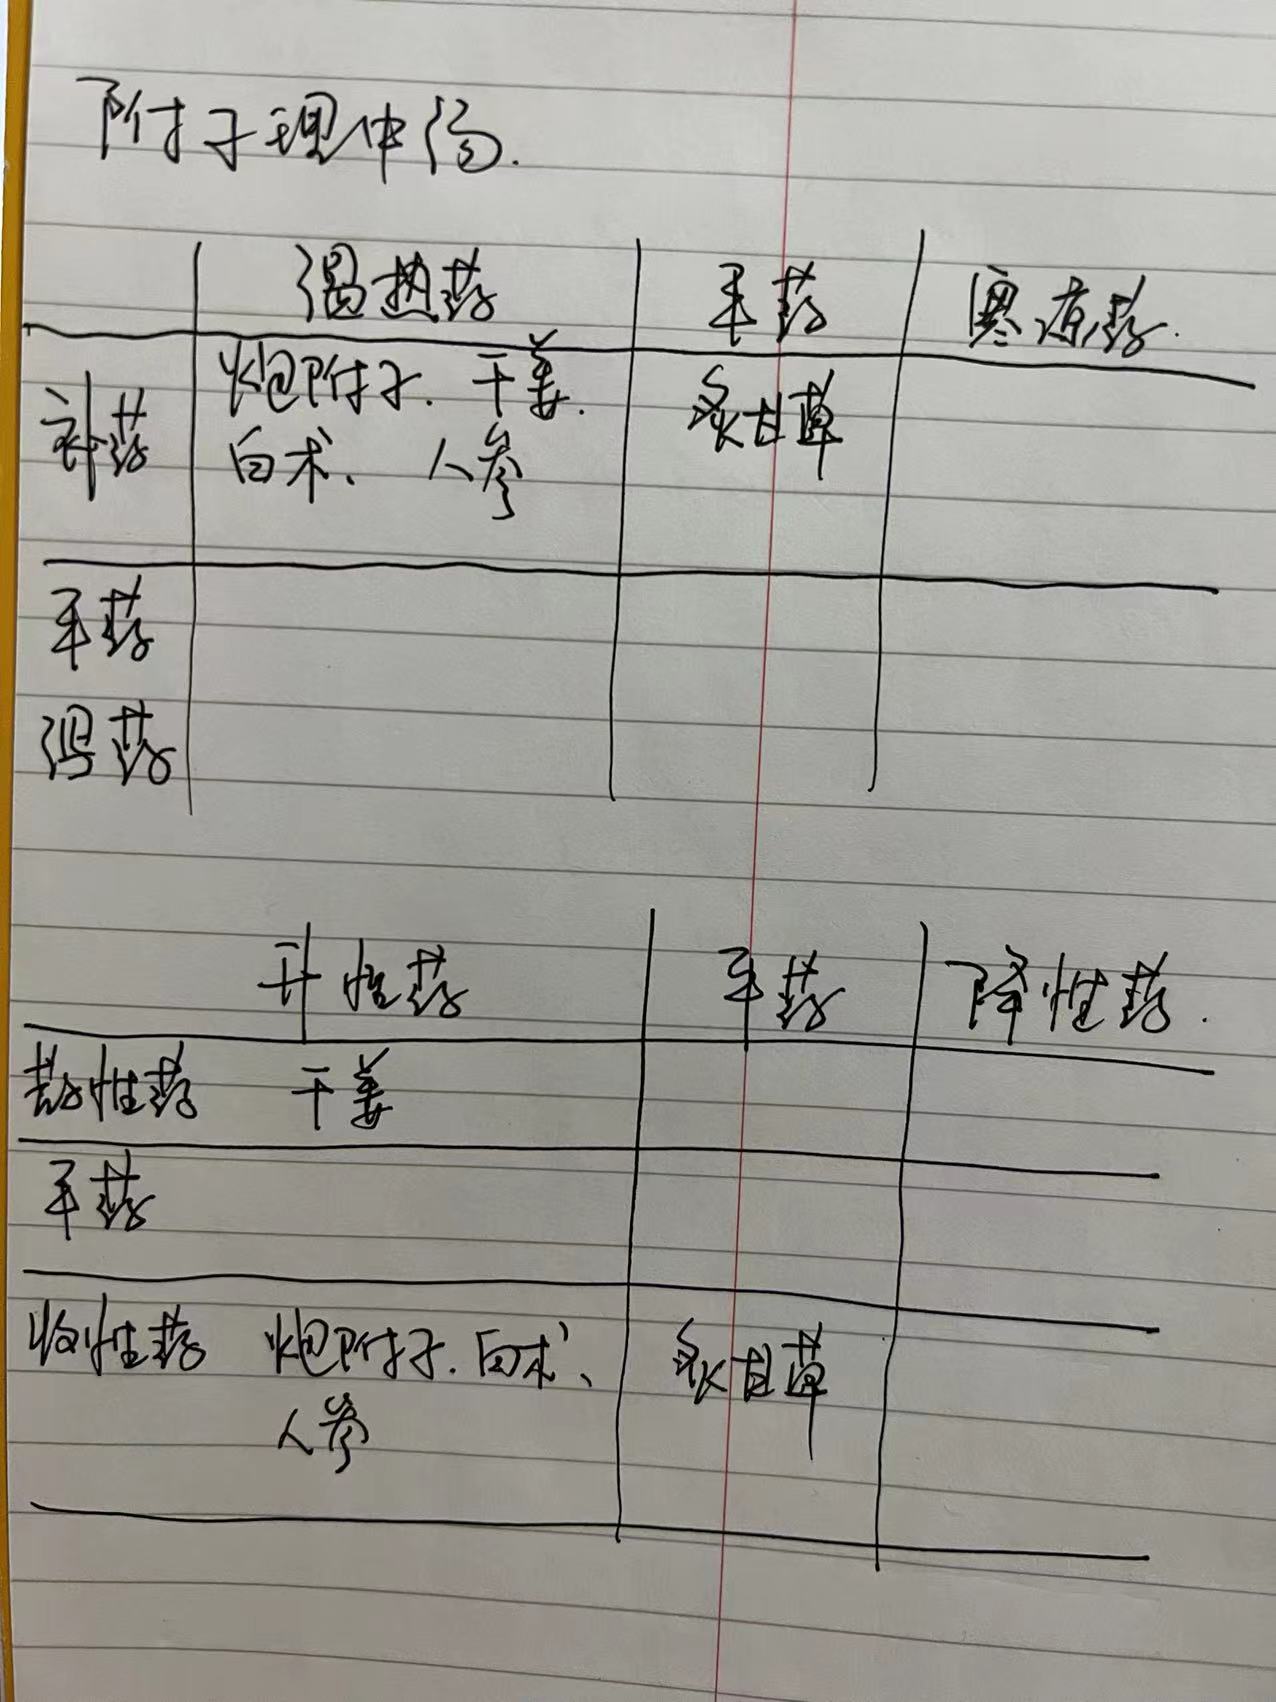 附子理中汤.
温热药 平药 寒凉药.
补药 炮附子、干姜、 炙甘草
白术、人参
平药
泻药
升性药 平药 降性药.
散性药 干姜
平药
收性药 炮附子、白术、 炙甘草
人参